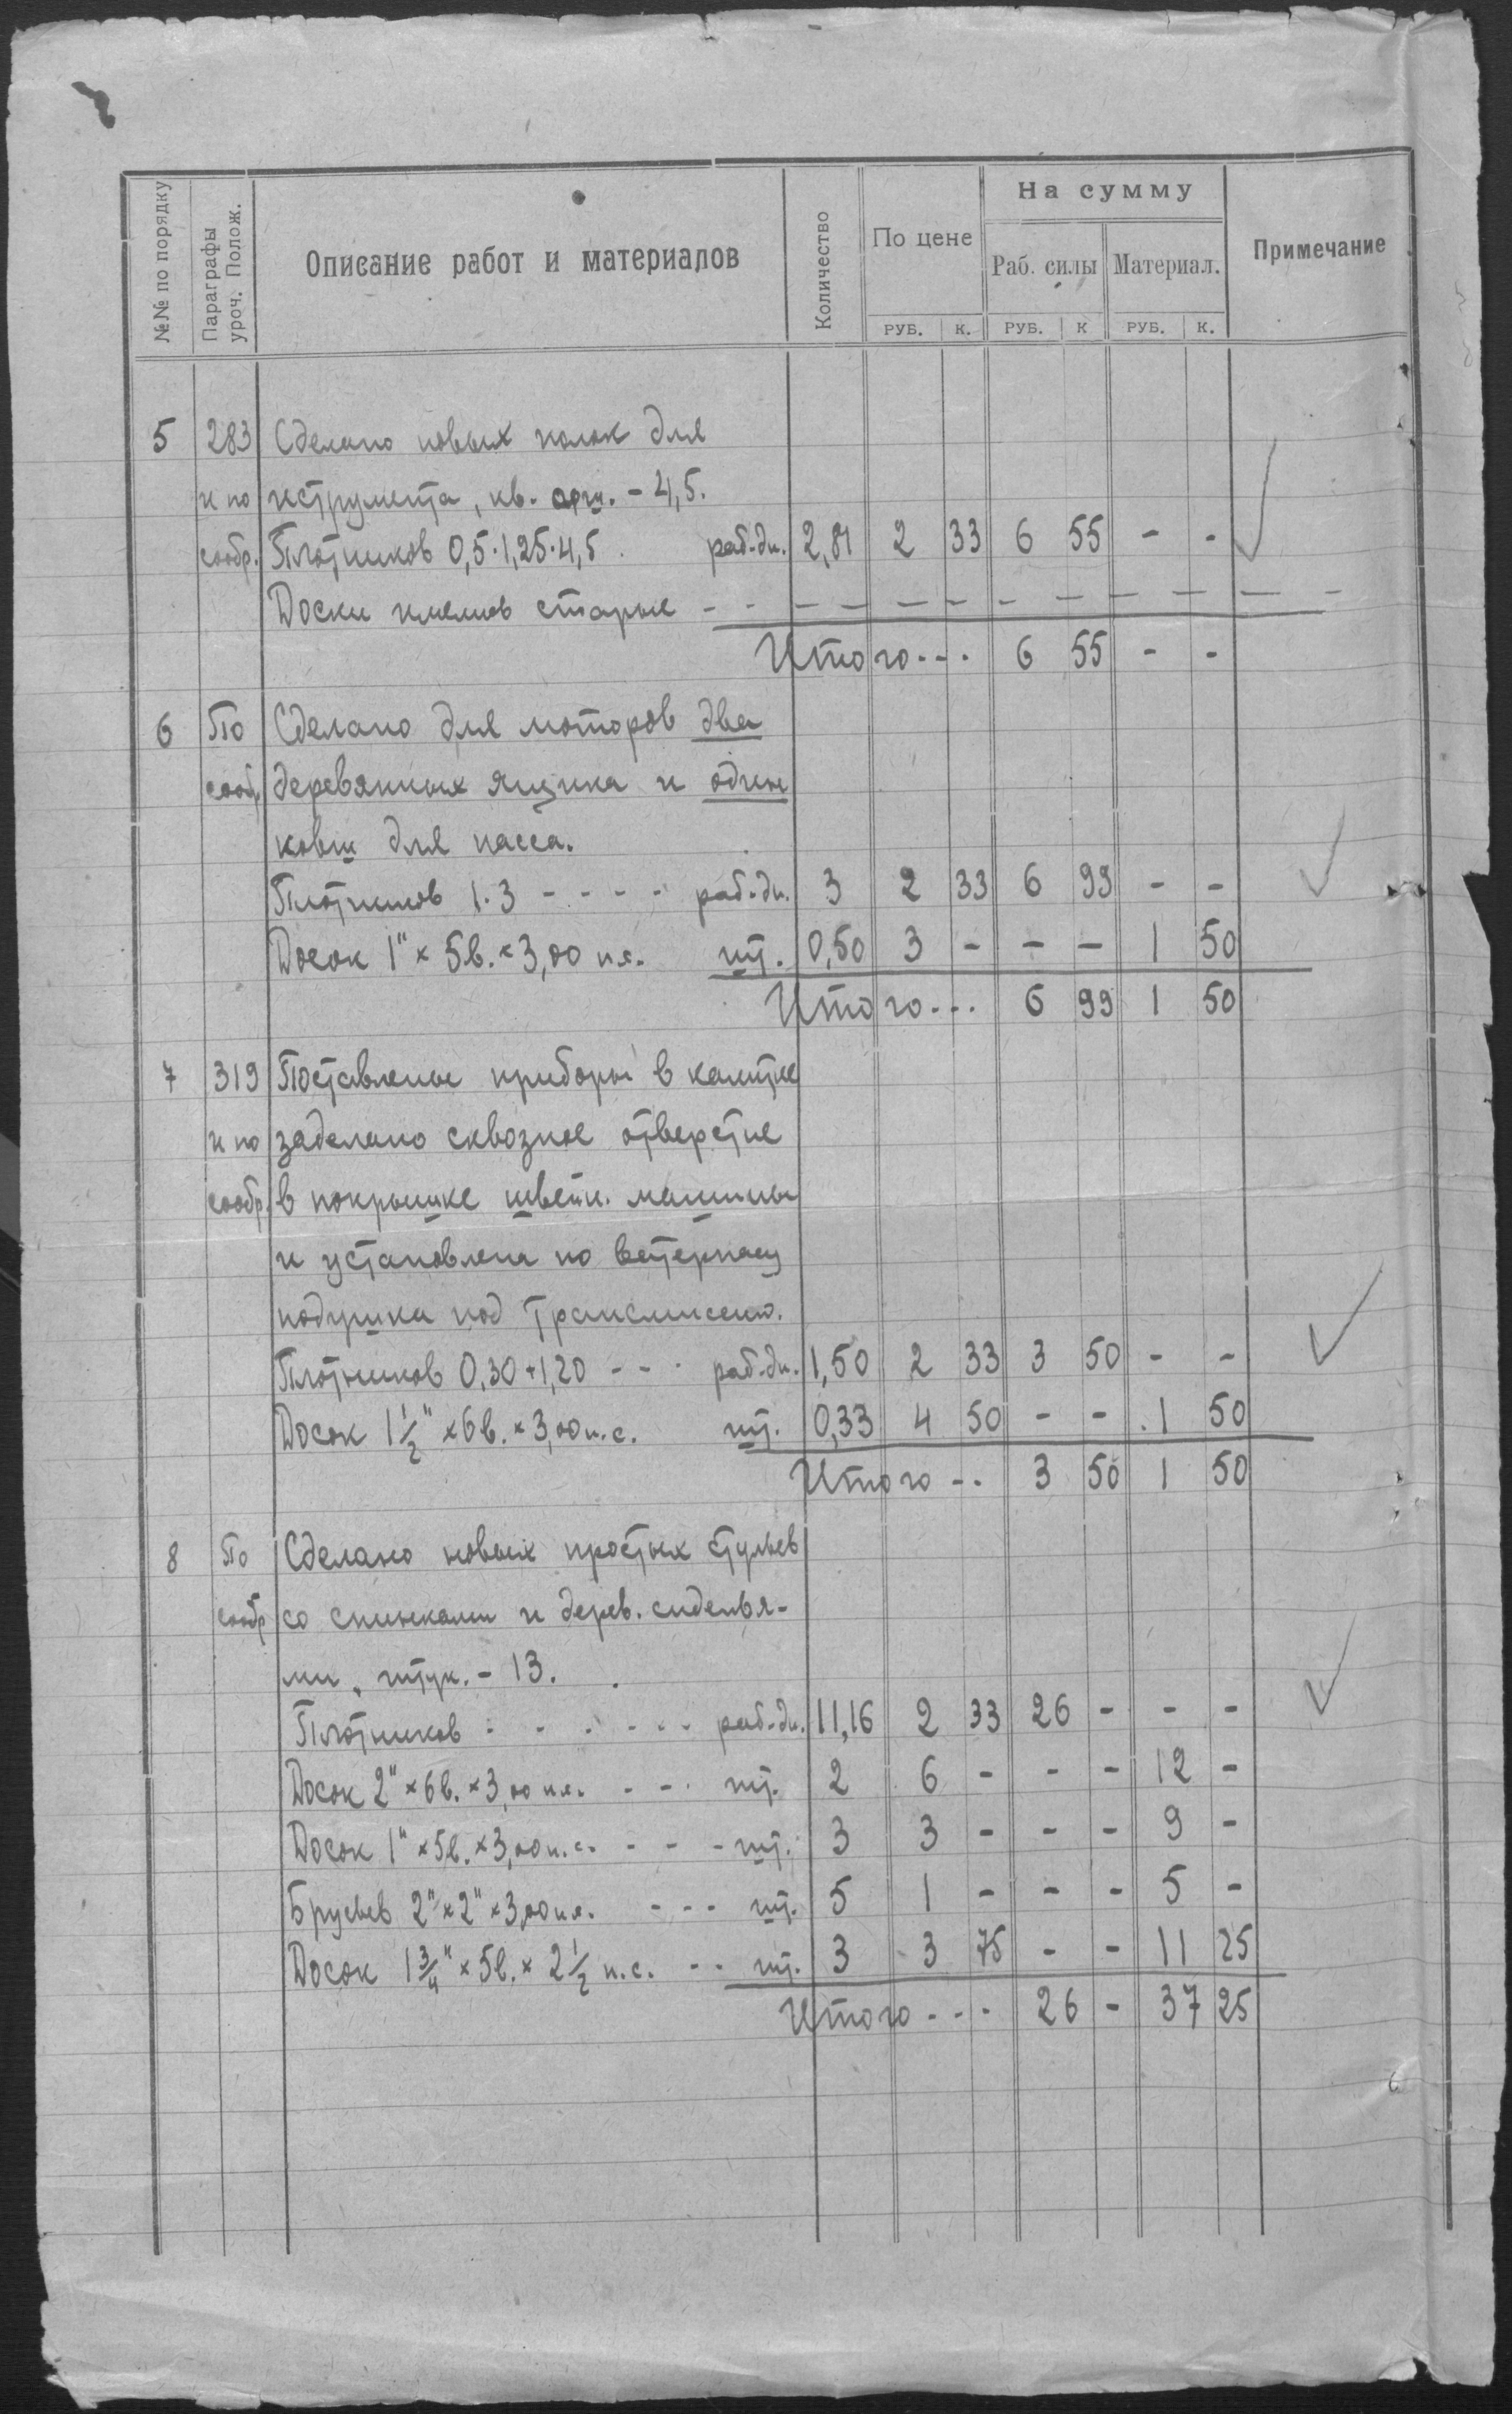 №№ по порядку | Параграфы уроч. Полож. | Описание работ и материалов | Количество | По цене | На сумму | Примечание
Раб. силы | Материал.
РУБ. | К. | РУБ. | К | РУБ. | К.
5 | 283 | Сделано новых полок для
и по | иструмента, кв. арш. - 4,5.
сообр. | Плотников 0,5·1,25·4,5 раб.дн. | 2,81 | 2 | 33 | 6 | 55 | - | -
Доски имелись старые - - - - - - - - - - - -
Итого... 6 | 55 | - | -
6 | По | Сделано для моторов два
сооб. | деревянных ящика и один
ковш для насса.
Плотников 1·3 - - - - раб.дн. | 3 | 2 | 33 | 6 | 99 | - | -
Досок 1" × 5в. × 3,00 п.с. шт. | 0,50 | 3 | - | - | - | 1 | 50
Итого... 6 | 99 | 1 | 50
7 | 319 | Поставлены приборы в калитке
и по | заделано сквозное отверстие
сообр. | в покрышке швейн. машины
и установлена по
подушка под трансмиссию.
Плотников 0,30+1,20 - - - раб.дн. | 1,50 | 2 | 33 | 3 | 50 | - | -
Досок 1½" × 6в. × 3,00 п.с. шт. | 0,33 | 4 | 50 | - | - | 1 | 50
Итого -- 3 | 50 | 1 | 50
8 | По | Сделано новых простых стульев
сообр | со спинками и дерев. сиденья-
ми, штук. - 13.
Плотников - - - - - - раб.дн. | 11,16 | 2 | 33 | 26 | - | - | -
Досок 2" × 6в. × 3,00 п.с. - - - шт. | 2 | 6 | - | - | - | 12 | -
Досок 1" × 5в. × 3,00 п.с. - - - шт. | 3 | 3 | - | - | - | 9 | -
Брусьев 2" × 2" × 3,00 п.с. - - - шт. | 5 | 1 | - | - | - | 5 | -
Досок 1¾" × 5в. × 2½ п.с. -- шт. | 3 | 3 | 75 | - | - | 11 | 25
Итого - - - 26 | - | 37 | 25